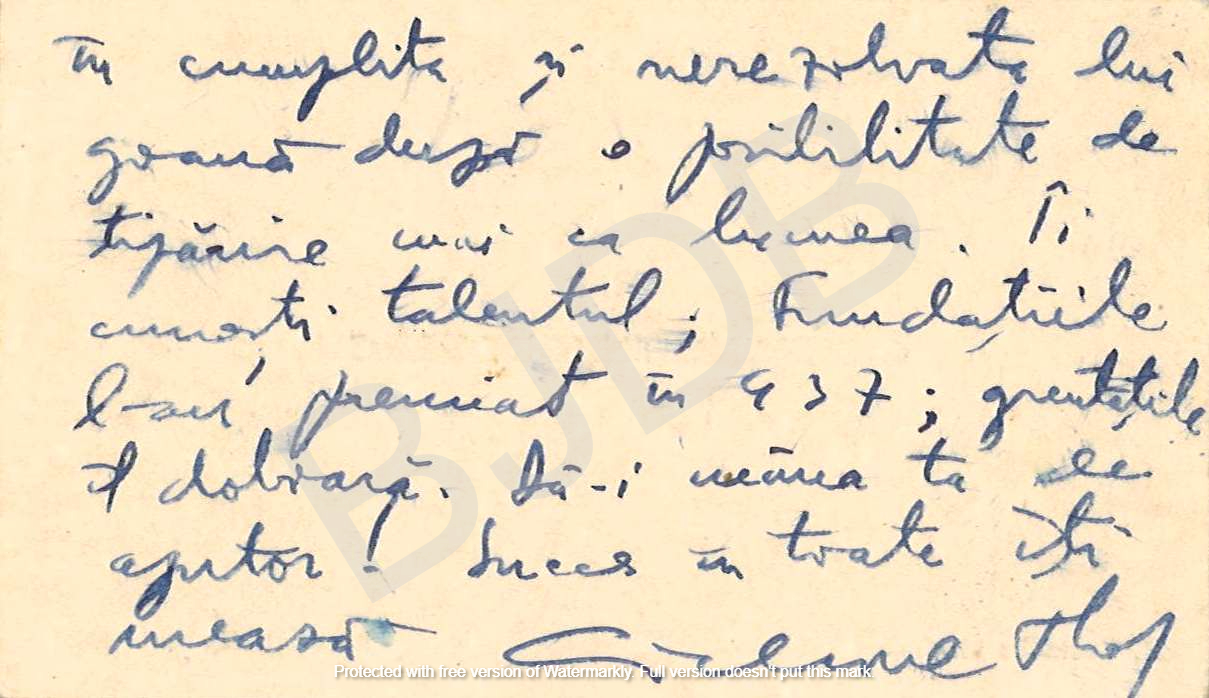 în cumplita și nerezolvata lui
goană după o posibilitate de
tipărire mai ca lumea. Îi
cunoști talentul; Fundațiile
l-au premiat în 937; greutățile
îl doboară. Dă-i mâna ta de
ajutor! Succes în toate îți
urează
BJDB
Protected with free version of Watermarkly. Full version doesn't put this mark.